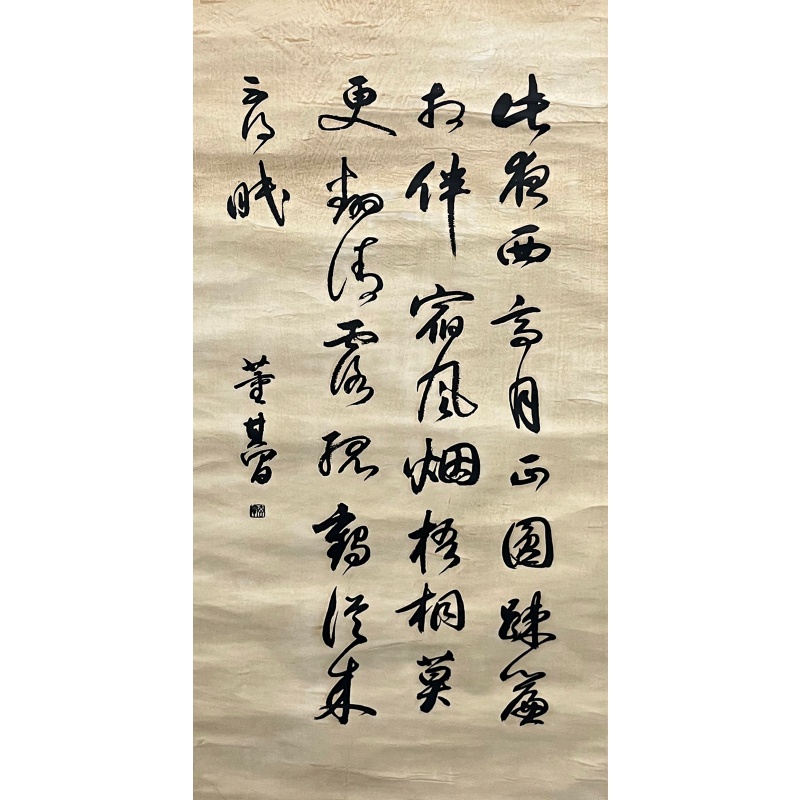 此夜西亭月正圓疎簾
相伴宿風烟梧桐莫
更翻清露孤鶴從來
不得眠
董其昌